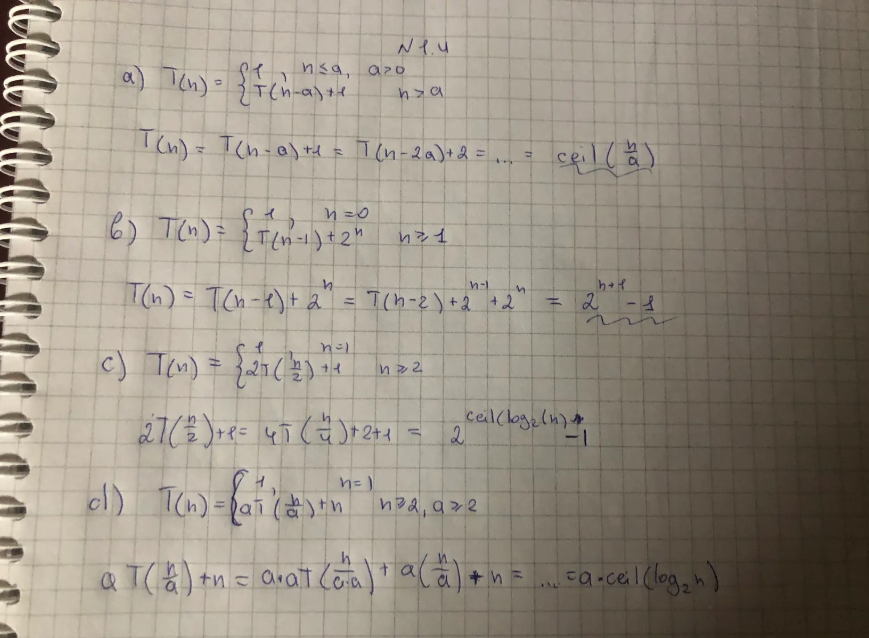 N 1.4
a) T(n) = { 1, n ≤ a, a>0
T(n-a)+1 n > a
T(n) = T(n-a)+1 = T(n-2a)+2 = ... = ceil(n/a)
b) T(n) = { 1, n=0
T(n-1)+2^n n ≥ 1
T(n) = T(n-1) + 2^n = T(n-2)+2^(n-1)+2^n = 2^(n+1) - 1
c) T(n) = { 1 n=1
2T(n/2)+1 n ≥ 2
2T(n/2)+1 = 4T(n/4)+2+1 = 2^ceil(log₂(n) -1
d) T(n) = { 1, n=1
aT(n/a)+n n ≥ 2, a ≥ 2
a T(n/a)+n = a·aT(n/(a·a)) + a(n/a) + n = ... = a·ceil(log₂n)